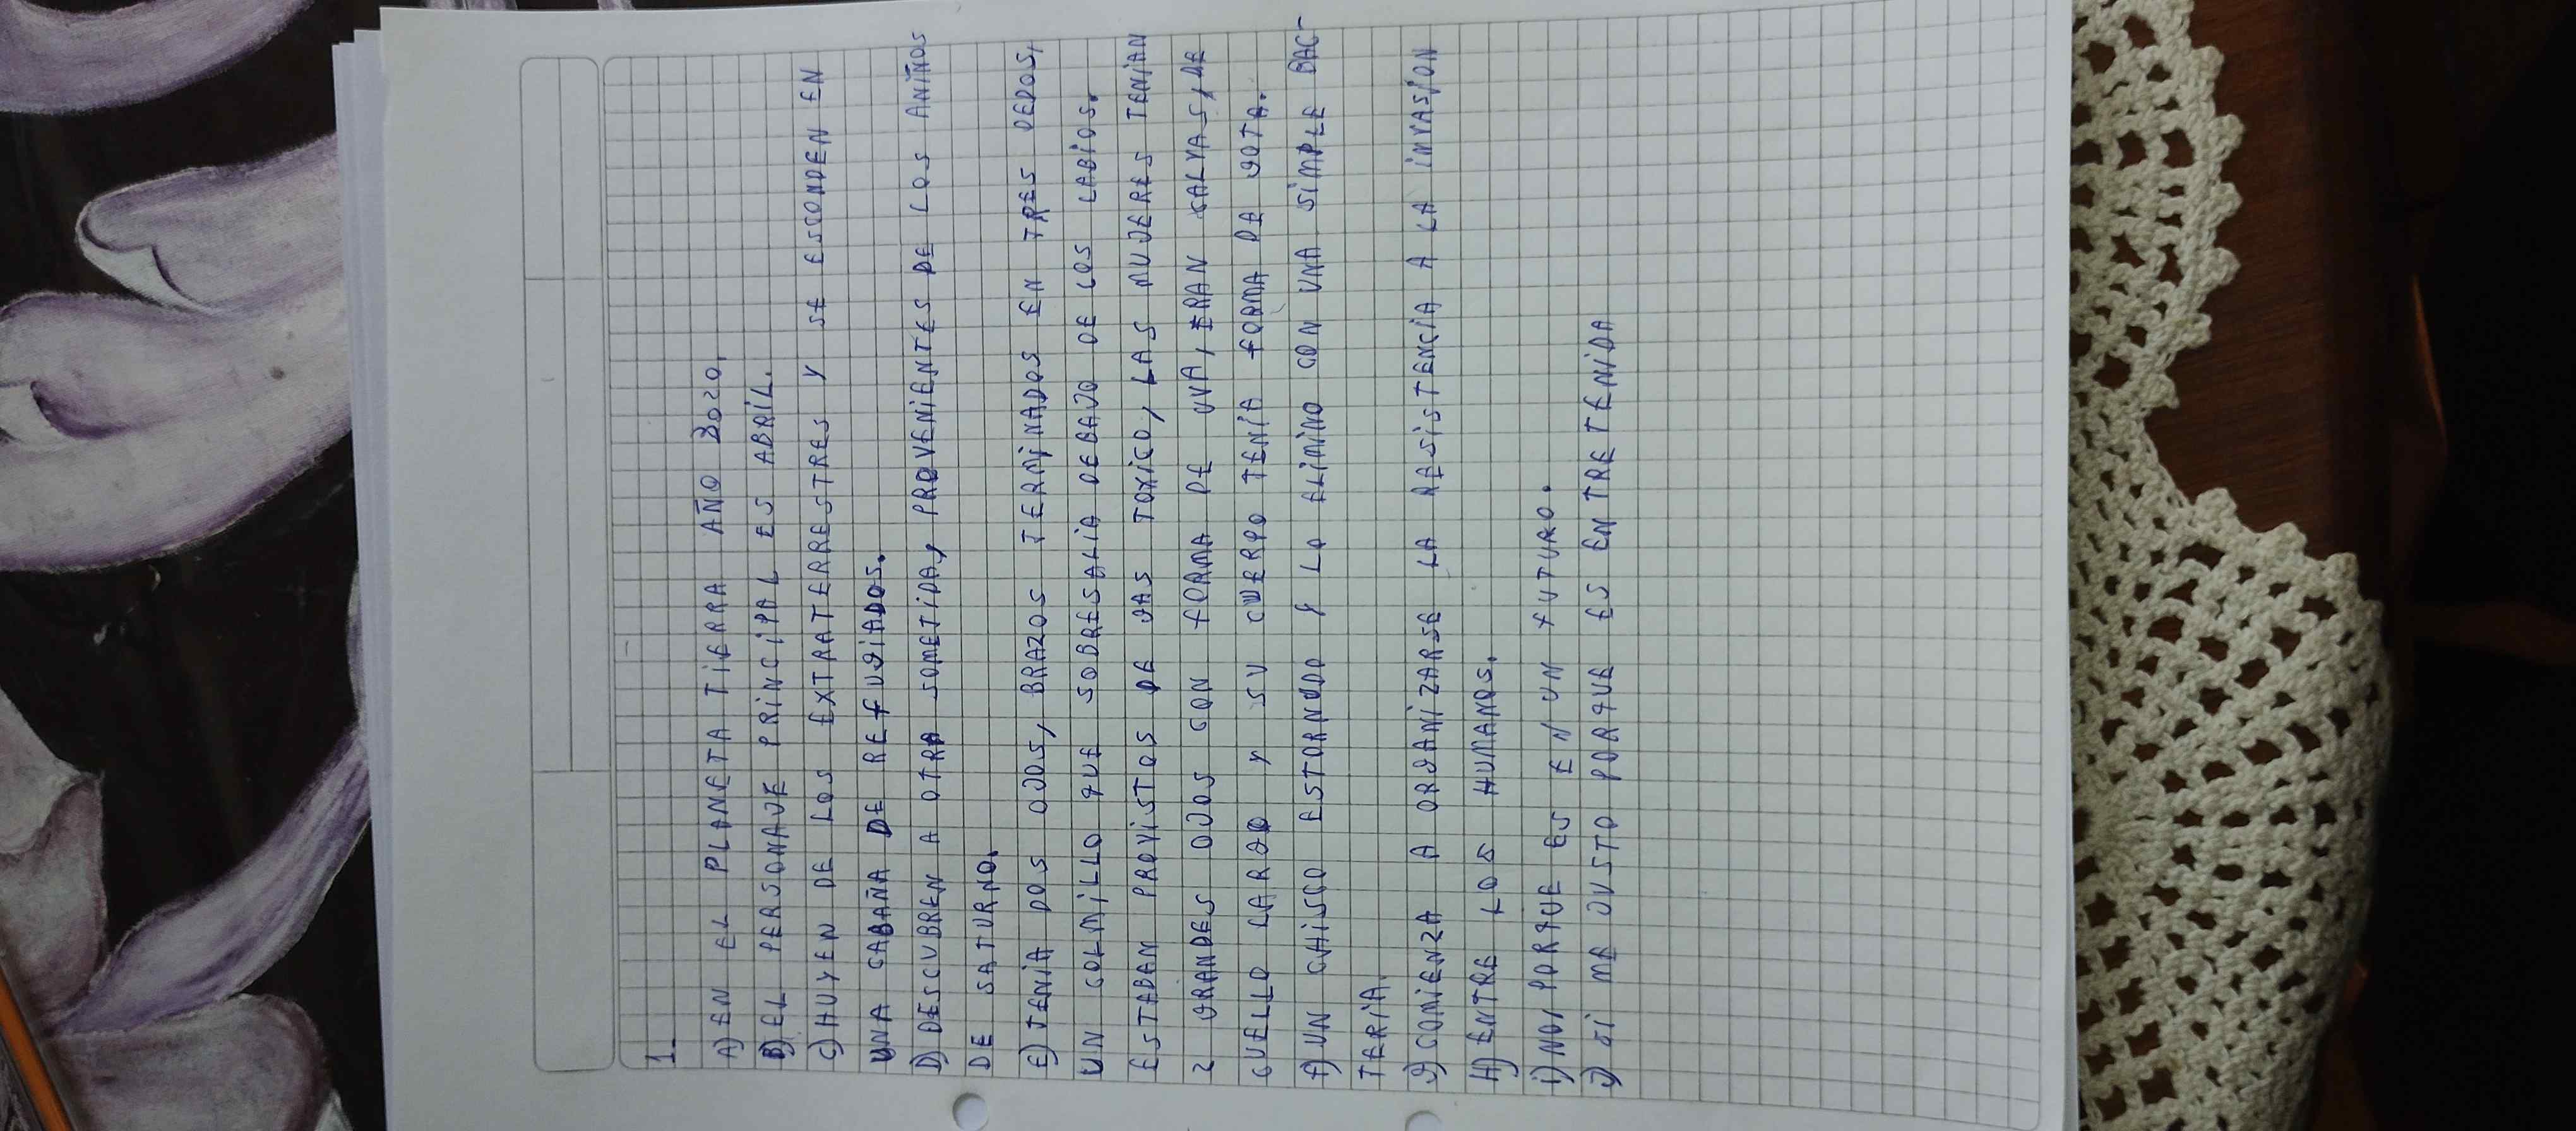 1_
A) EN EL PLANETA TIERRA AÑO 3020.
B) EL PERSONAJE PRINCIPAL ES ABRIL.
C) HUYEN DE LOS EXTRATERRESTRES Y SE ESCONDEN EN
UNA CABAÑA DE REFUGIADOS.
D) DESCUBREN A OTRA SOMETIDA, PROVENIENTES DE LOS ANIÑOS
DE SATURNO.
E) TENIA DOS OJOS, BRAZOS TERMINADOS EN TRES DEDOS,
UN COLMILLO QUE SOBRESALIA DEBAJO DE LOS LABIOS.
ESTABAN PROVISTOS DE GAS TOXICO, LAS MUJERES TENIAN
2 GRANDES OJOS CON FORMA DE UVA, ERAN CALVAS, DE
CUELLO LARGO Y SU CUERPO TENIA FORMA DE GOTA.
F) UN CHISCO ESTORNUDO Y LO ELIMINO CON UNA SIMPLE BAC-
TERIA.
G) COMIENZA A ORGANIZARSE LA RESISTENCIA A LA INVASION
H) ENTRE LOS HUMANOS.
I) NO, PORQUE ES EN UN FUTURO.
J) SI ME GUSTO PORQUE ES ENTRETENIDA